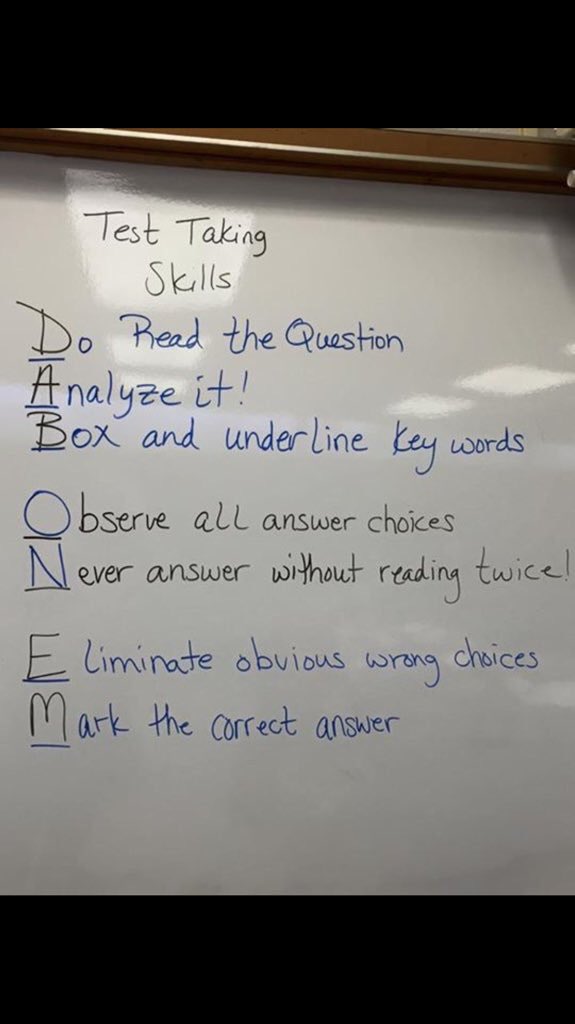 Test Taking
Skills
Do Read the Question
Analyze it!
Box and underline key words
Observe all answer choices
Never answer without reading twice!
Eliminate obvious wrong choices
Mark the correct answer